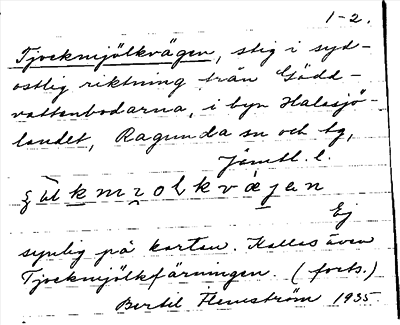 1-2.
Tjockmjölkvägen, stig i syd-
ostlig riktning från Gödd-
vattenbodarna, i byn Halasjö-
landet, Ragunda sn och tg,
Jämtl. l.
kvägen
Ej
synlig på kartan. Kallas även
Tjockmjölkfärningen. (forts.)
Bertil Flemström 1935